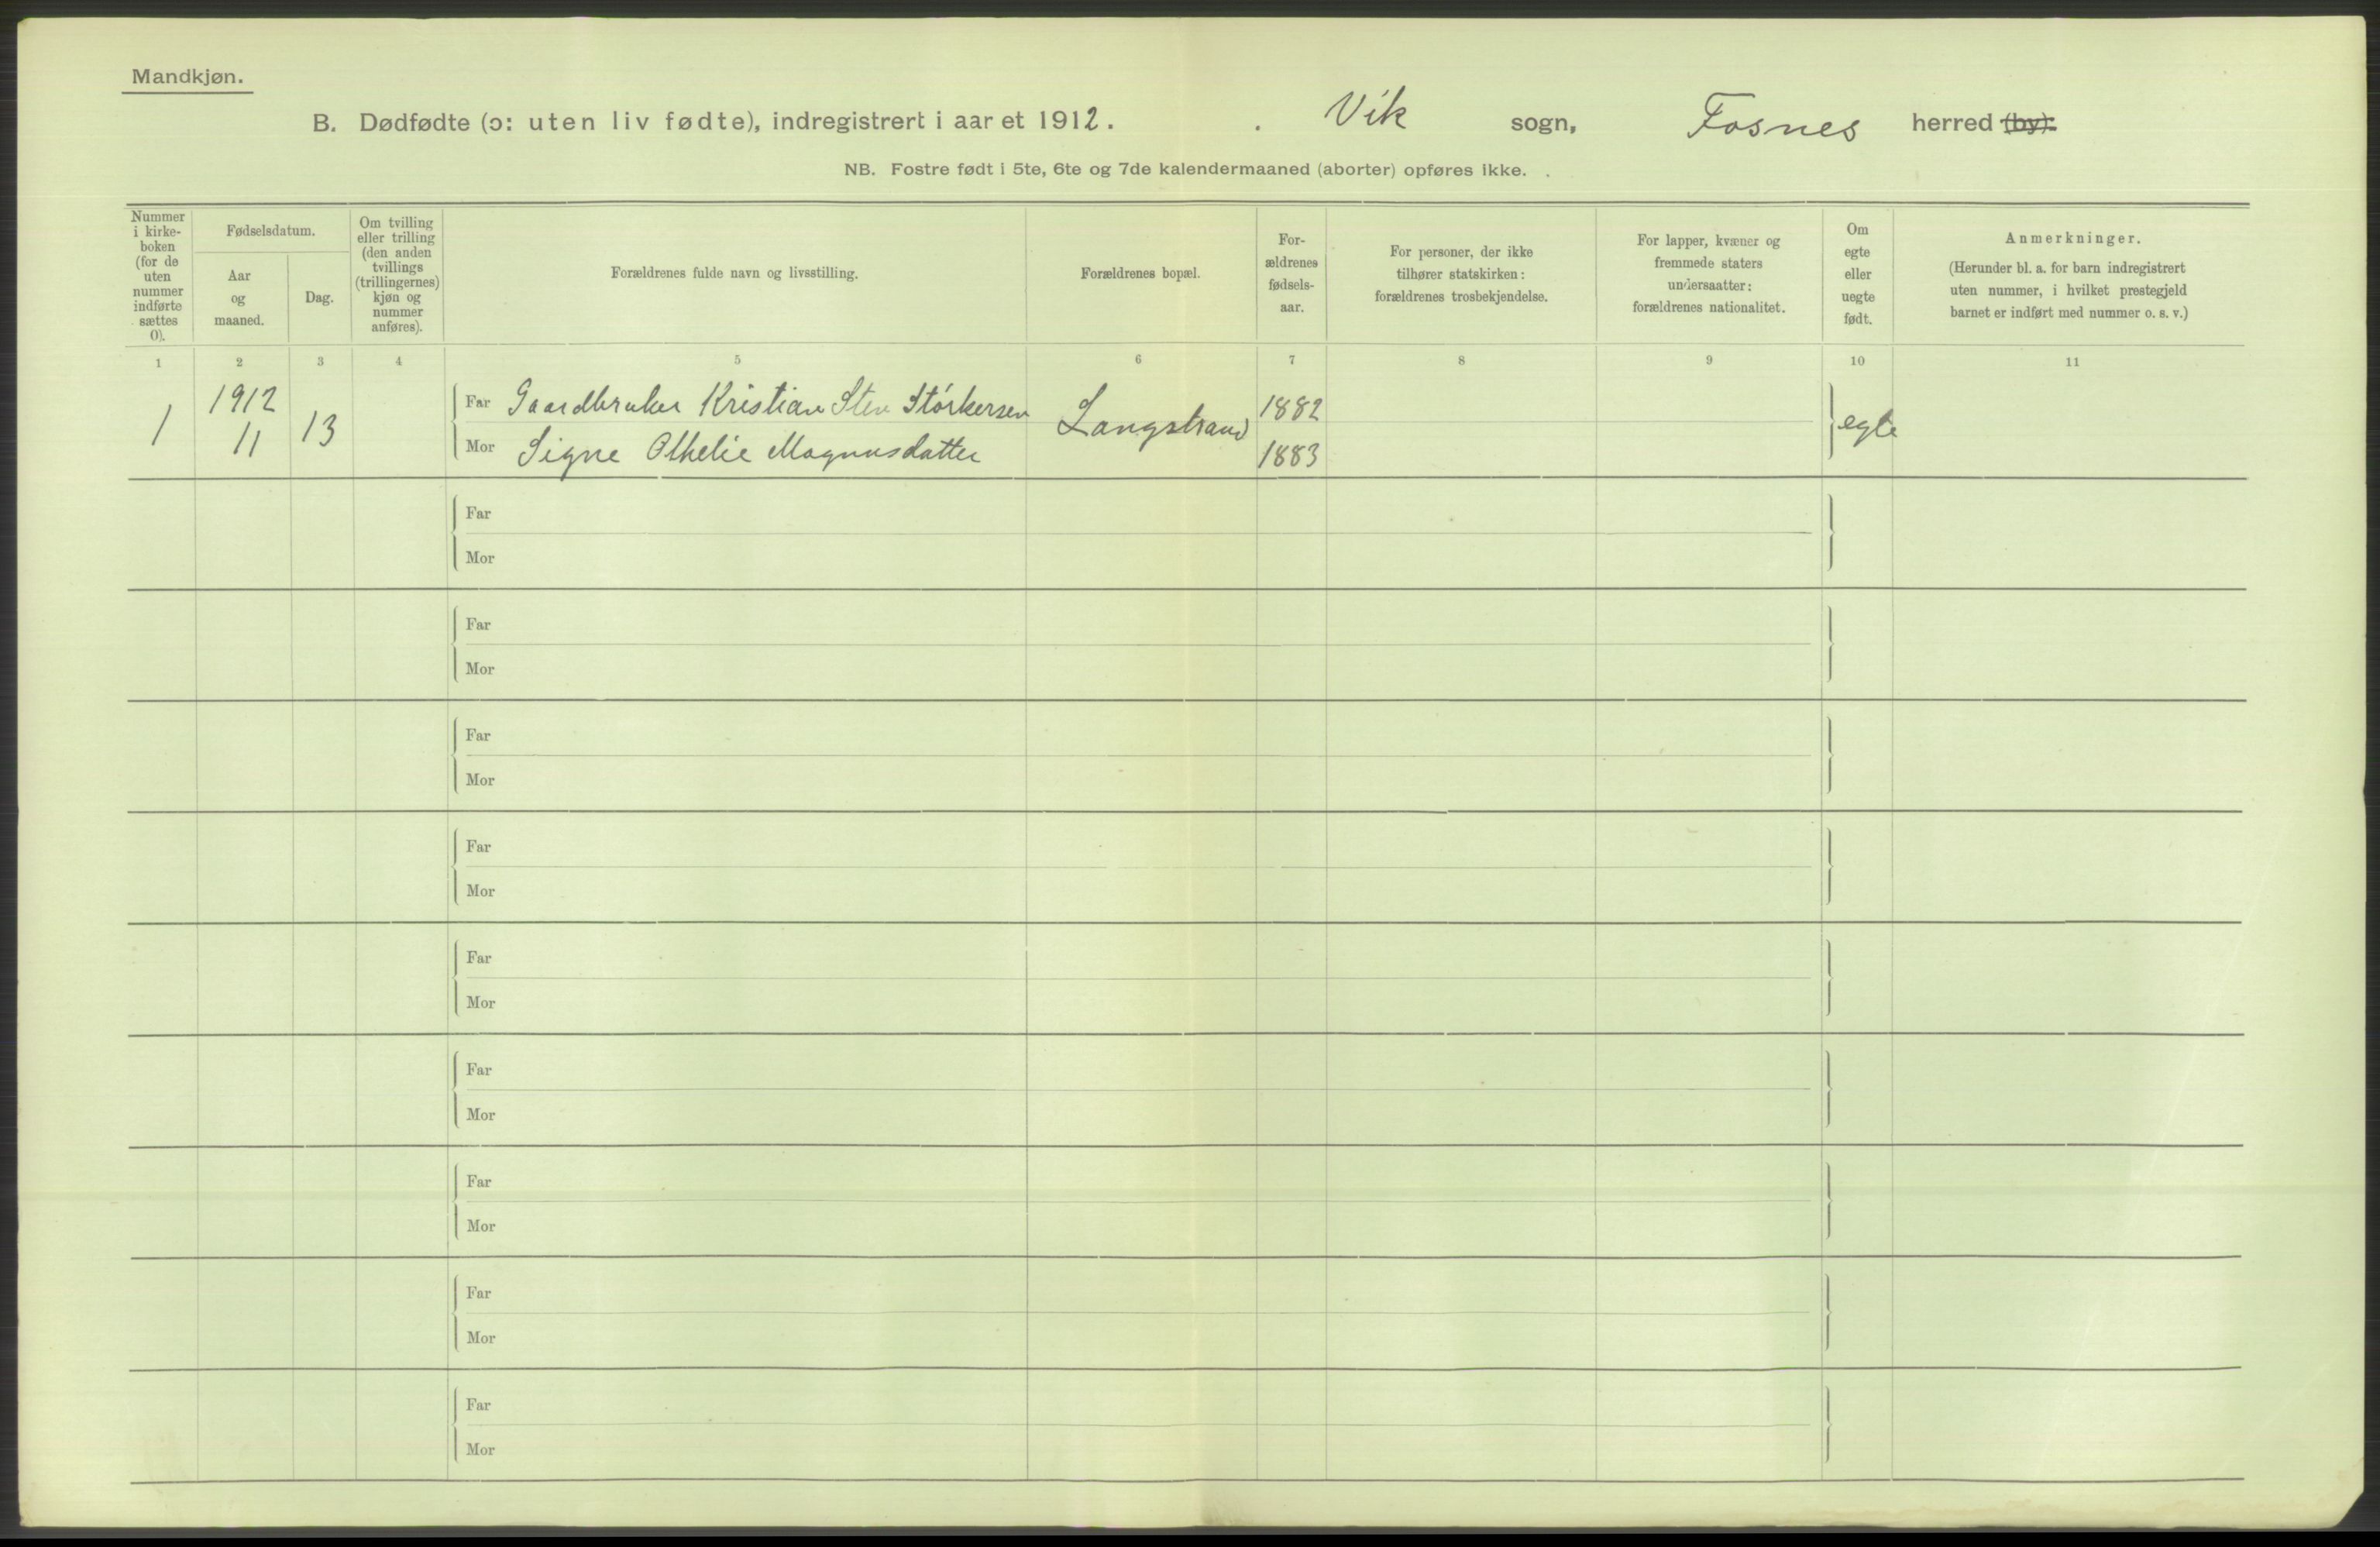 Mandkjøn.
B. Dødfødte (ɔ: uten liv fødte), indregistrert i aaret 1912. Vik sogn, Fosnes herred (by).
NB. Fostre født i 5te, 6te og 7de kalendermaaned (aborter) opføres ikke.
Nummer i kirke-boken (for de uten nummer indførte sættes 0).
Fødselsdatum.
Aar og maaned.
Dag.
Om tvilling eller trilling (den anden tvillings (trillingernes) kjøn og nummer anføres).
Forældrenes fulde navn og livsstilling.
Forældrenes bopæl.
For-ældrenes fødsels-aar.
For personer, der ikke tilhører statskirken: forældrenes trosbekjendelse.
For lapper, kvæner og fremmede staters undersaatter: forældrenes nationalitet.
Om egte eller uegte født.
Anmerkninger.
(Herunder bl. a. for barn indregistrert uten nummer, i hvilket prestegjeld barnet er indført med nummer o. s. v.)
1 2 3 4 5 6 7 8 9 10 11
1 1912 11 13 Far Gaardbruker Kristian Sten Störkersen Langstrand 1882 egte
Mor Signe Othelie Magnusdatter 1883
Far
Mor
Far
Mor
Far
Mor
Far
Mor
Far
Mor
Far
Mor
Far
Mor
Far
Mor
Far
Mor